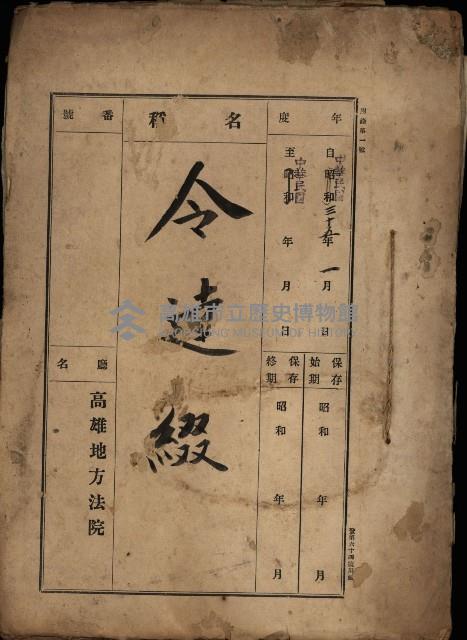 年度
自昭和三十五年一月日
中華民國
至昭和年月日
中華民國
保存始期
昭和年月
保存終期
昭和年月
名稱
令達綴
番號
廳名
高雄地方法院
高雄市立歷史博物館
KAOHSIUNG MUSEUM OF HISTORY